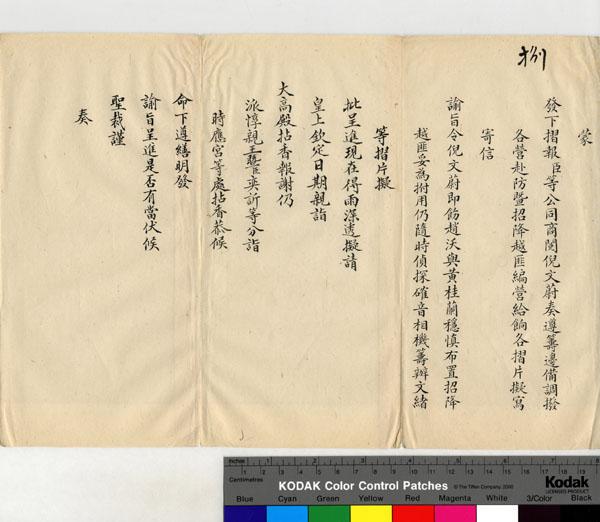 蒙
發下摺報臣等公同商閱倪文蔚奏遵籌邊備調撥
各營赴防暨招降越匪編營給餉各摺片擬寫
寄信
諭旨令倪文蔚即飭趙沃與黃桂蘭穩慎布置招降
越匪妥為拊用仍隨時偵探確音相機籌辦文緒
等摺片擬
批呈進現在得雨深透擬請
皇上欽定日期親詣
大高殿拈香報謝仍
派惇親王奕誴等分詣
時應宮等處拈香恭候
命下遵繕明發
諭旨呈進是否有當伏候
聖裁謹
奏
Inches 1 2 3 4 5 6 7 8
Centimetres
KODAK Color Control Patches
© The Tiffen Company, 2000
Kodak
LICENSED PRODUCT
Blue Cyan Green Yellow Red Magenta White 3/Color Black